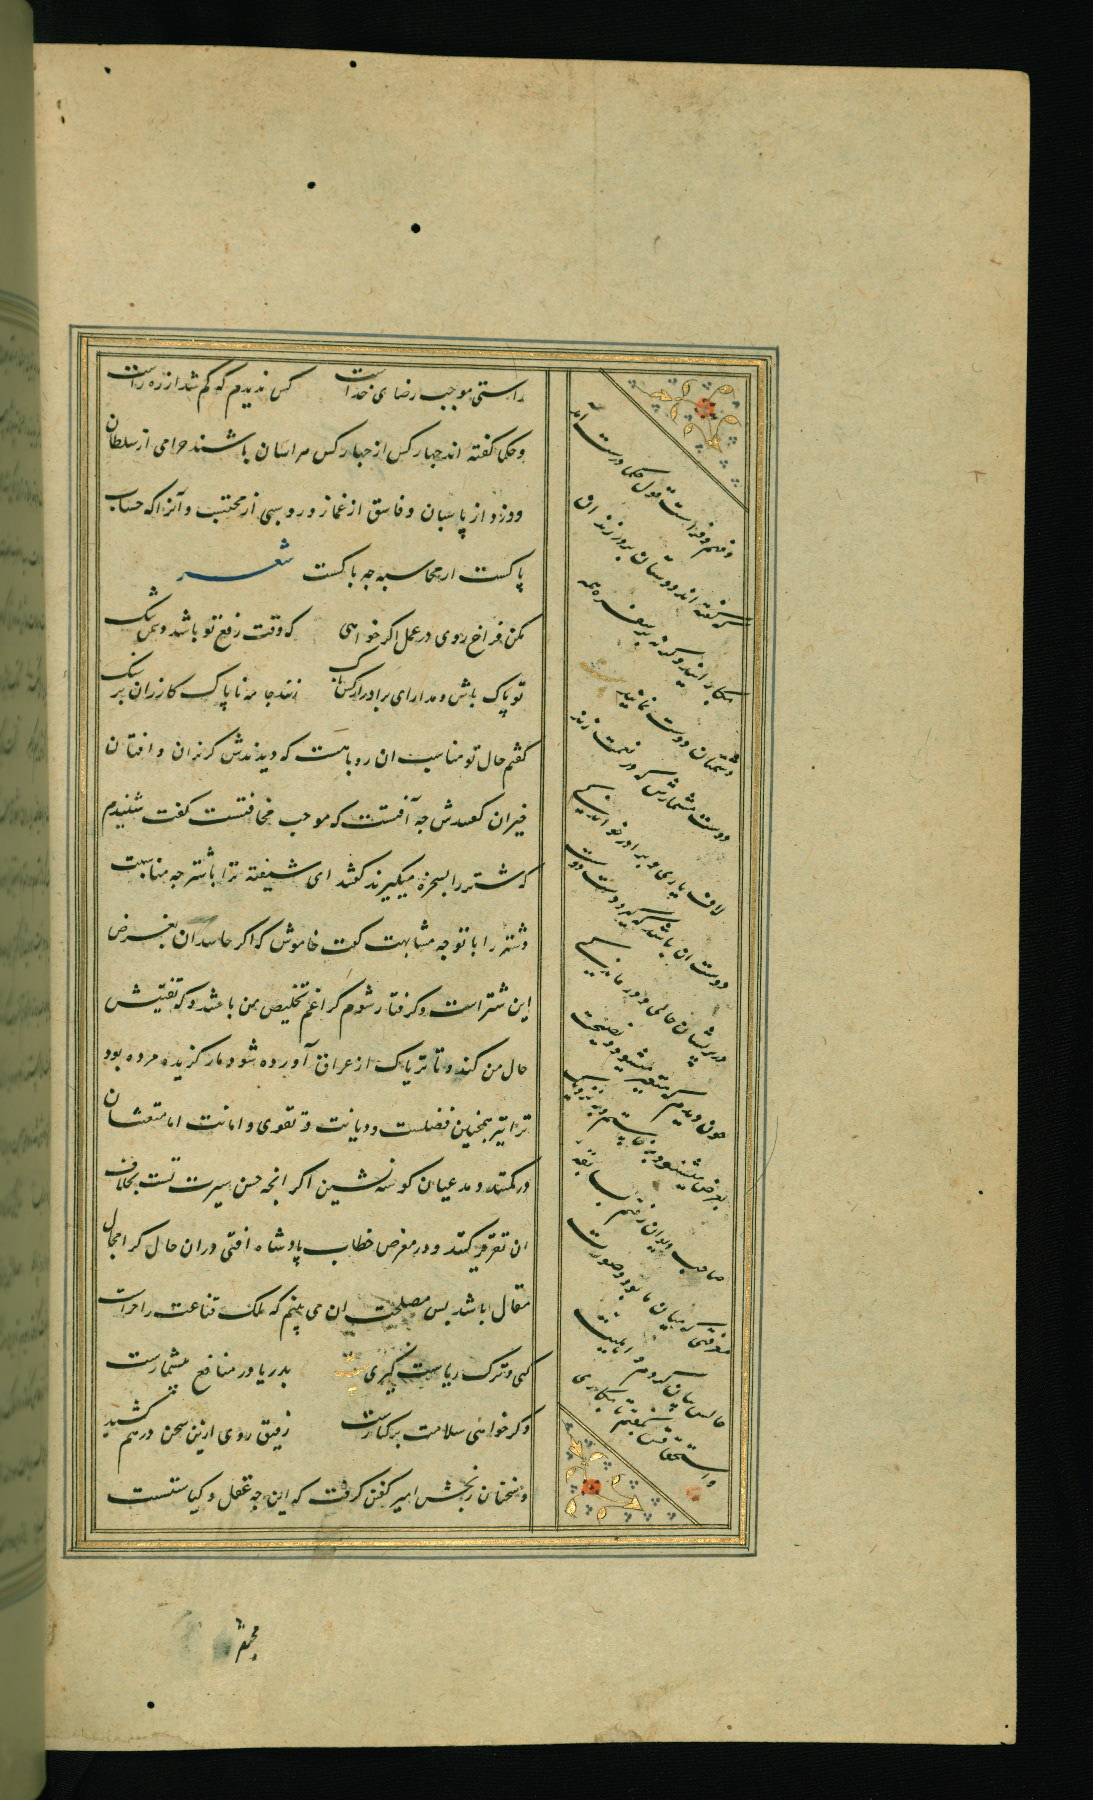 راستی موجب رضای خداست کس ندیدم که کم شد از ره راست
و حکما کفته اند جهار کس از جهار کس هراسان باشند حرامی از سلطان
و دزد از پاسبان و فاسق از غماز و روسبی از محتسب و آنرا که حساب
پاکست از محاسبه جه باکست شعر
مکن فراخ روی در عمل اکر خواهی که وقت رفع تو باشد دشمن تنک
تو پاک باش و مدار ای برادر از کس باک زنند جامه ناپاک کازران بر سنک
کفتم حال تو مناسب ان روباهست که دیدندش کریزان و افتان
خیزان کفتندش جه آفتست که موجب مخافتست کفت شنیدم
که شتر را بسخره میکیرند کفتند ای شیفته ترا باشتر جه مناسبت
و شتر را با تو جه مشابهت کفت خاموش که اکر حاسدان بغرض
این شتر است و کرفتار شوم کرا غم تخلیص من باشد و که تفتیش
حال من کند و تا تریاک از عراق آورده شود مار کزیده مرده بود
ترا نیز همچنین فضلست و دیانت و تقوی و امانت اما متعنتان
در کمینند و مدعیان کوشه نشین اکر انجه حسن سیرت تست بخلاف
ان تقریر کنند و در معرض خطاب پادشاه افتی در ان حال کرا مجال
مقال باشد بس مصلحت ان می بینم که ملک قناعت را حراست
کنی و ترک ریاست کیری بیت بدریا در منافع بیشمارست
و کر خواهی سلامت بر کنارست رفیق روی ازین سخن در هم کشید
و سخنان رنجش امیز کفتن کرفت که این جه عقل و کیاستست
و فهم و فراست قول حکما درست آمد
که کفته اند دوستان در زندان
بکار ایند و کر نه بر سفره همه
دشمنان دوست نمایند
دوست مشمار آنکه در نعمت زند
لاف یاری و برادر خواندکی
دوست ان باشد که کیرد دست دوست
در پریشان حالی و درماندکی
جون دیدم که متغیر میشود و نصیحت
بغرض میشنود بنزدیک
صاحب دیوان رفتم بسابقه
معرفتی که میان ما بود و صورت
حالش بیان کردم و اهلیت
و استحقاقش بکفتم تا بکاری
مختصر